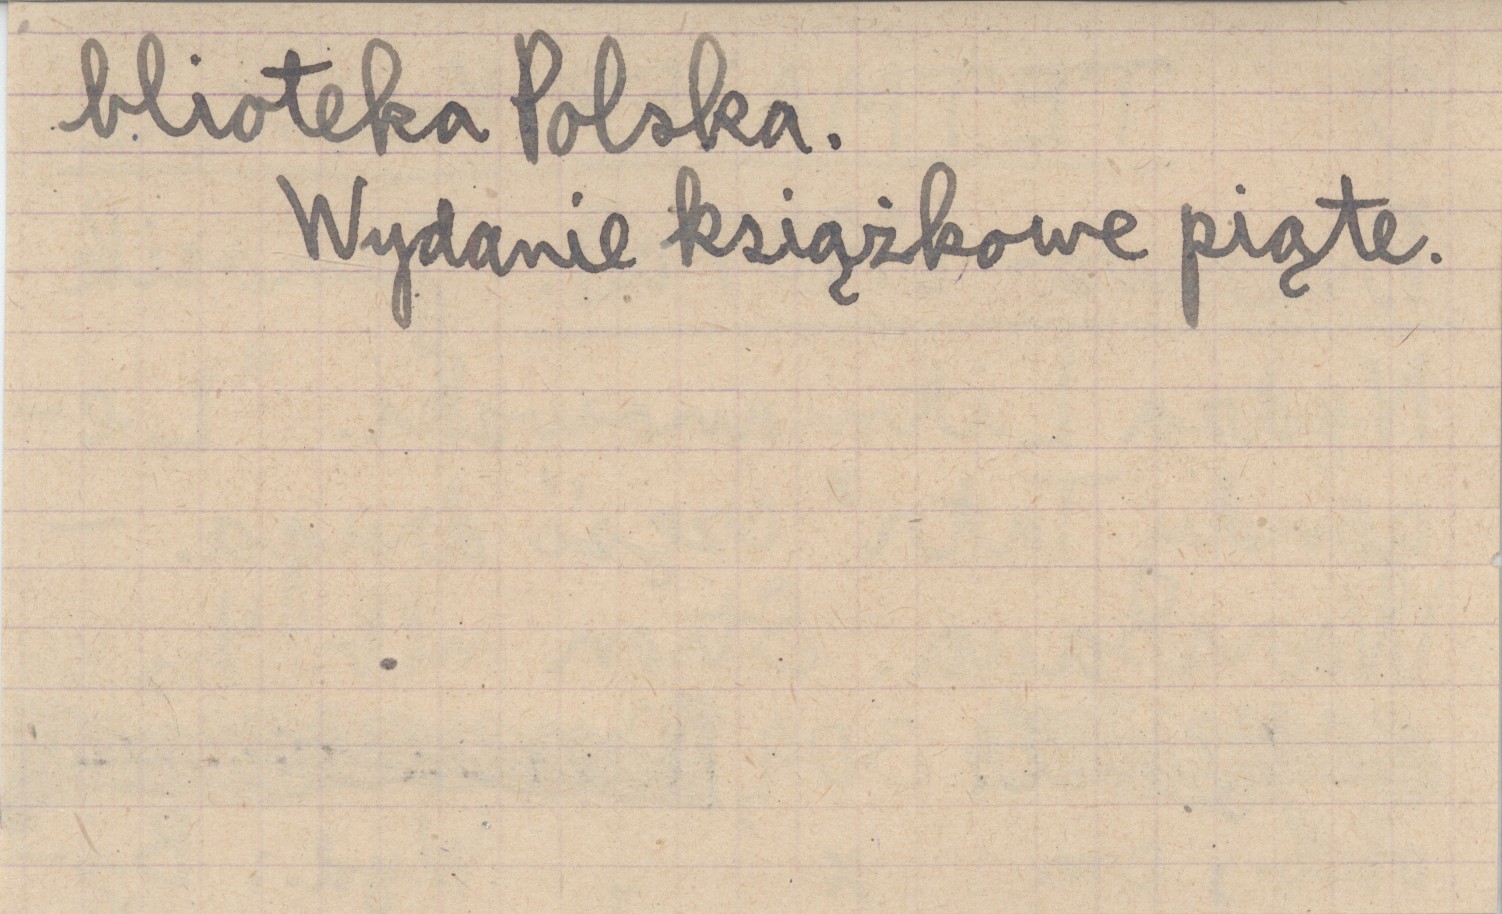 blioteka Polska.
Wydanie książkowe piąte.